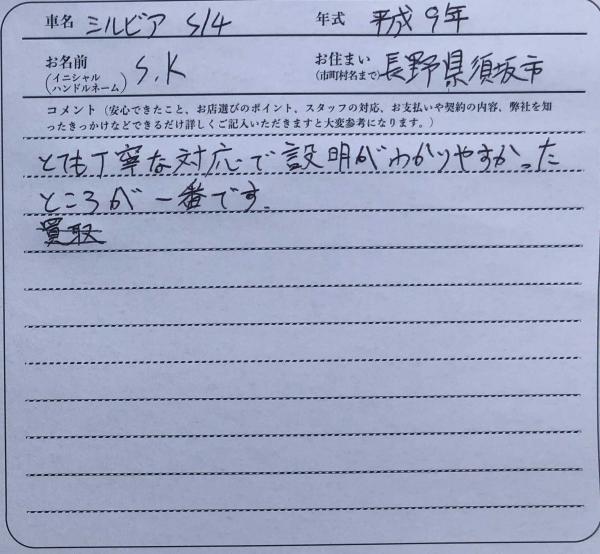 車名 シルビア S14 年式 平成9年
お名前 (イニシャル ハンドルネーム) S.K お住まい (市町村名まで) 長野県須坂市
コメント（安心できたこと、お店選びのポイント、スタッフの対応、お支払いや契約の内容、弊社を知
ったきっかけなどできるだけ詳しくご記入いただきますと大変参考になります。）
とても丁寧な対応で説明がわかりやすかった
ところが一番です。
買取